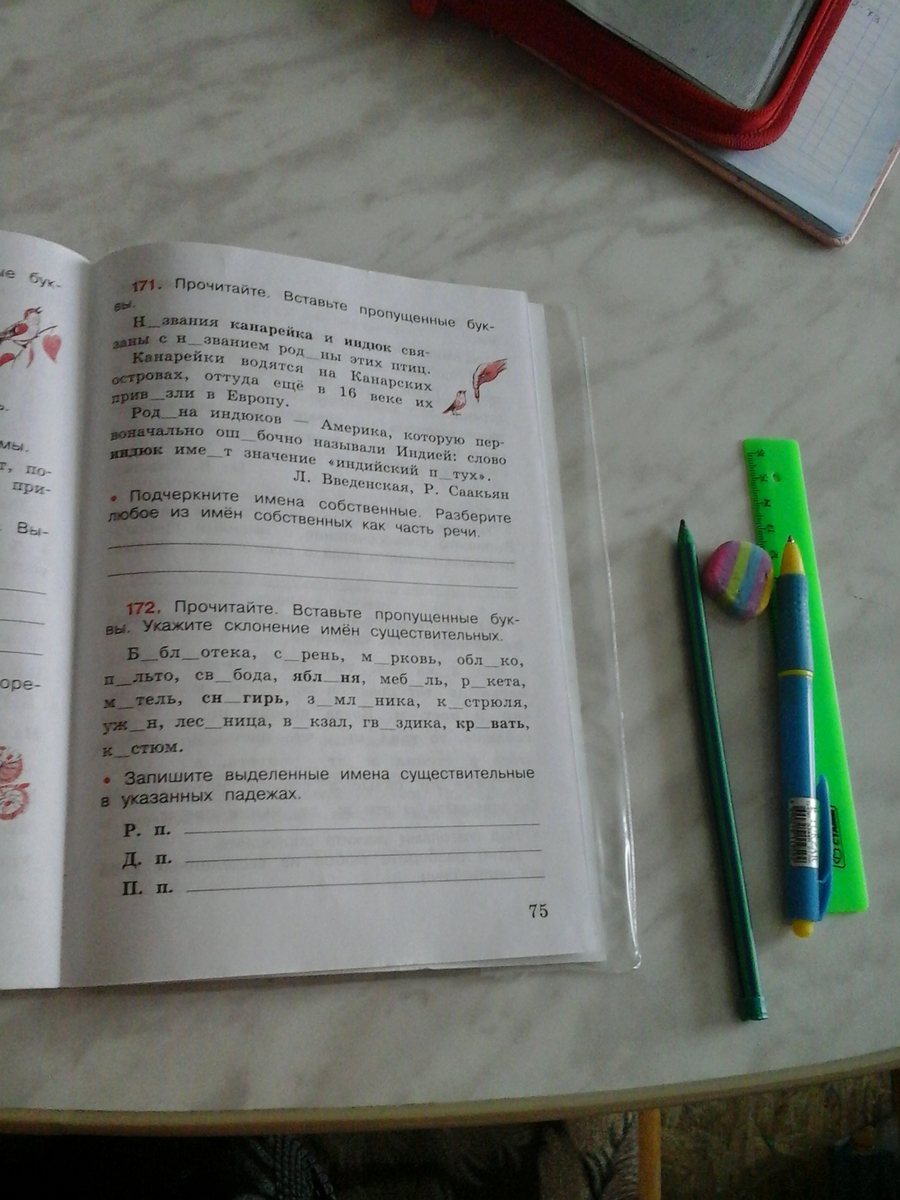 ые бук-
мы.
т, по-
при-
Вы-
оре-
171. Прочитайте. Вставьте пропущенные бук-
вы.
Н__звания канарейка и индюк свя-
заны с н__званием род__ны этих птиц.
Канарейки водятся на Канарских
островах, оттуда ещё в 16 веке их
прив__зли в Европу.
Род__на индюков — Америка, которую пер-
воначально ош__бочно называли Индией: слово
индюк име__т значение «индийский п__тух».
Л. Введенская, Р. Саакьян
• Подчеркните имена собственные. Разберите
любое из имён собственных как часть речи.
172. Прочитайте. Вставьте пропущенные бук-
вы. Укажите склонение имён существительных.
Б__бл__отека, с__рень, м__рковь, обл__ко,
п__льто, св__бода, ябл__ня, меб__ль, р__кета,
м__тель, сн__гирь, з__мл__ника, к__стрюля,
уж__н, лес__ница, в__кзал, гв__здика, кр__вать,
к__стюм.
• Запишите выделенные имена существительные
в указанных падежах.
Р. п.
Д. п.
П. п.
75